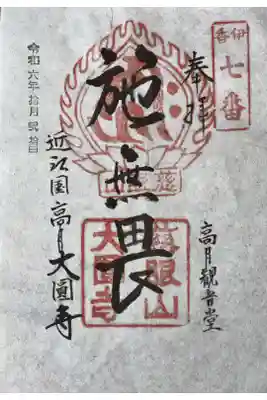 伊香
七番
奉拝
高月觀音堂
施無畏
慈眼山
大圓寺
近江国高月大圓寺
令和六年拾月弐拾日